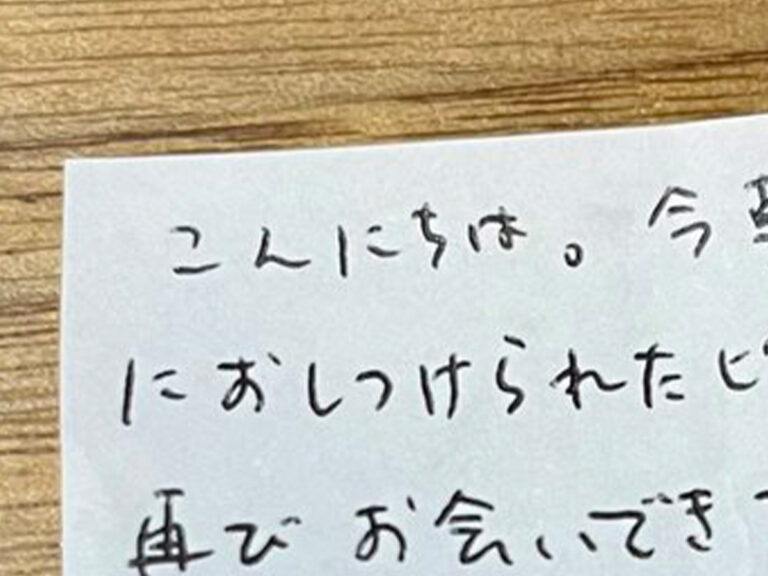 こんにちは。今
におしつけられたピ
再びお会いでき